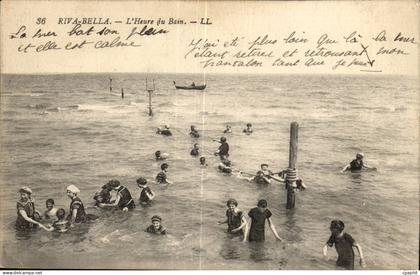 36 RIVA-BELLA. - L'Heure du Bain. - LL
La mer bat son plein
et elle est calme
J'ai été plus loin que là la mer
étant retirée et retroussant mon
pantalon tant que je peux